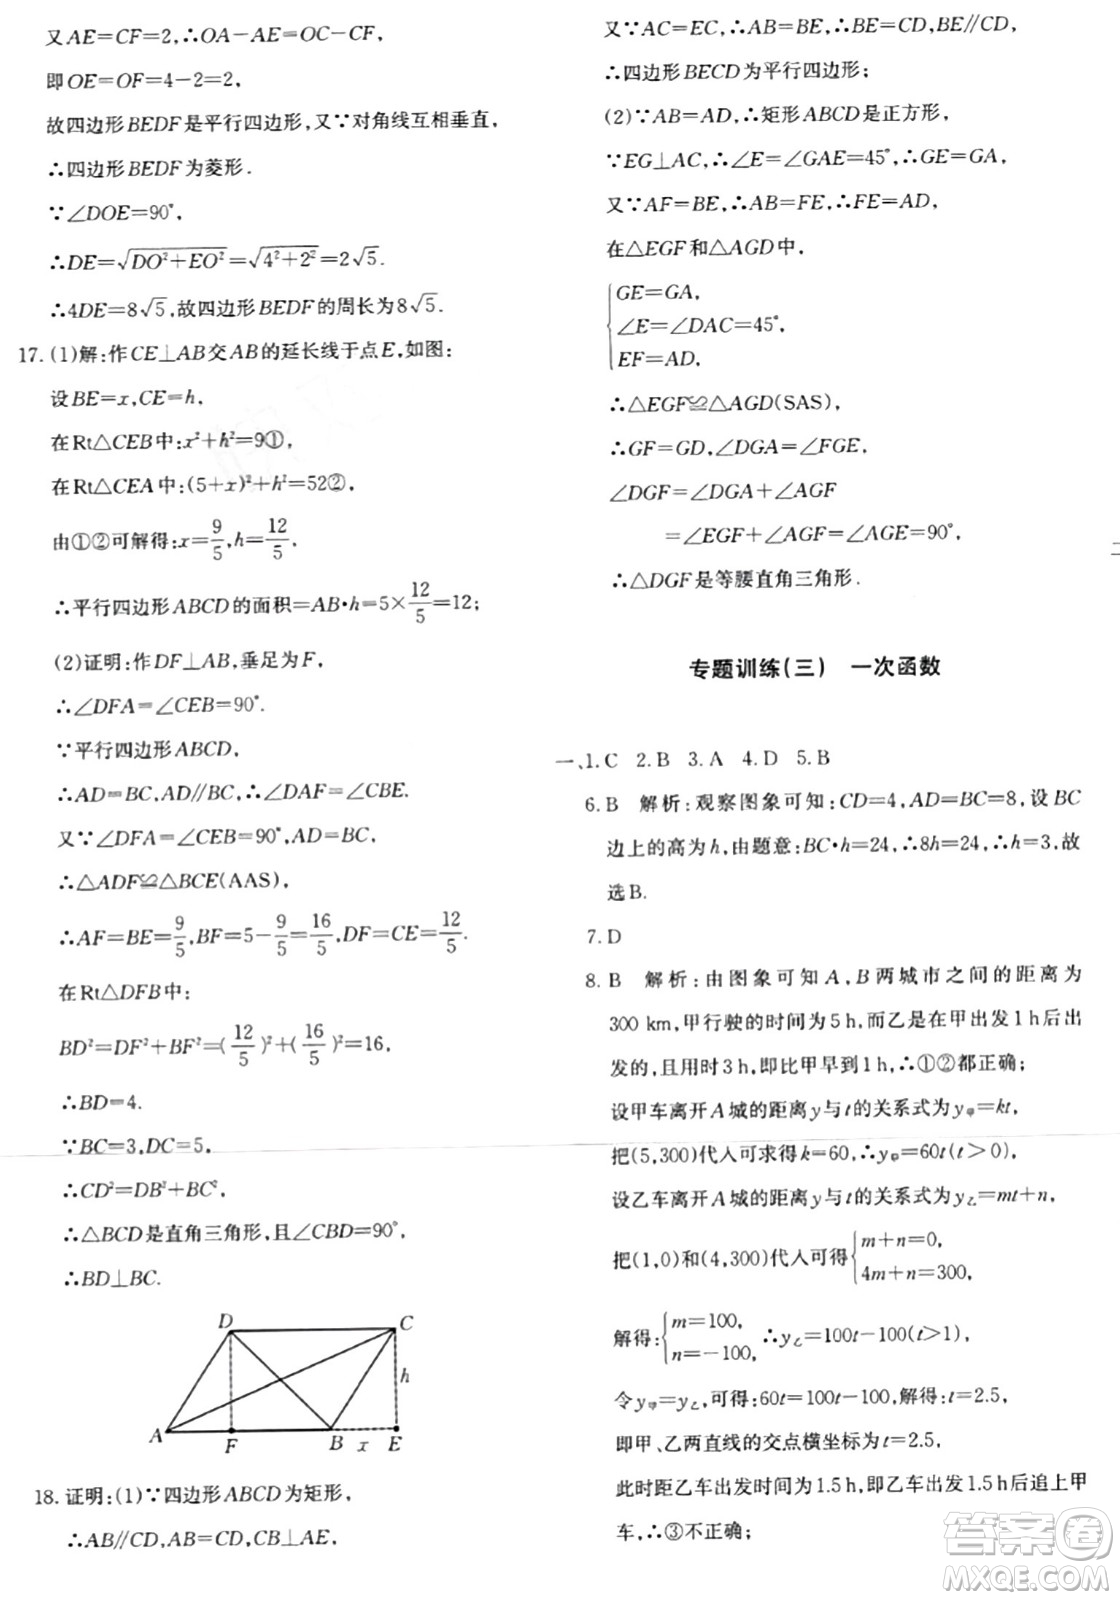 又AE=CF=2,∴OA-AE=OC-CF,
即OE=OF=4-2=2,
故四边形BEDF是平行四边形,又∵对角线互相垂直,
∴四边形BEDF为菱形.
∵∠DOE=90°,
∴DE=√(DO²+EO²)=√(4²+2²)=2√5.
∴4DE=8√5,故四边形BEDF的周长为8√5.
17.(1)解:作CE⊥AB交AB的延长线于点E,如图:
设BE=x,CE=h,
在Rt△CEB中:x²+h²=9①,
在Rt△CEA中:(5+x)²+h²=52②,
由①②可解得:x=9/5,h=12/5.
∴平行四边形ABCD的面积=AB·h=5×12/5=12;
(2)证明:作DF⊥AB,垂足为F,
∴∠DFA=∠CEB=90°.
∵平行四边形ABCD,
∴AD=BC,AD∥BC,∴∠DAF=∠CBE.
又∵∠DFA=∠CEB=90°,AD=BC,
∴△ADF≌△BCE(AAS),
∴AF=BE=9/5,BF=5-9/5=16/5,DF=CE=12/5.
在Rt△DFB中:
BD²=DF²+BF²=(12/5)²+(16/5)²=16,
∴BD=4.
∵BC=3,DC=5,
∴CD²=DB²+BC²,
∴△BCD是直角三角形,且∠CBD=90°,
∴BD⊥BC.
D C
h
A F B x E
18.证明:(1)∵四边形ABCD为矩形,
∴AB∥CD,AB=CD,CB⊥AE,
又∵AC=EC,∴AB=BE,∴BE=CD,BE∥CD,
∴四边形BECD为平行四边形;
(2)∵AB=AD,∴矩形ABCD是正方形,
∵EG⊥AC,∴∠E=∠GAE=45°,∴GE=GA,
又∵AF=BE,∴AB=FE,∴FE=AD,
在△EGF和△AGD中,
GE=GA,
∠E=∠DAC=45°,
EF=AD,
∴△EGF≌△AGD(SAS),
∴GF=GD,∠DGA=∠FGE,
∠DGF=∠DGA+∠AGF
=∠EGF+∠AGF=∠AGE=90°,
∴△DGF是等腰直角三角形.
专题训练(三) 一次函数
一、1.C 2.B 3.A 4.D 5.B
6.B 解析:观察图象可知:CD=4,AD=BC=8,设BC
边上的高为h,由题意:BC·h=24,∴8h=24,∴h=3.故
选B.
7.D
8.B 解析:由图象可知A,B两城市之间的距离为
300 km,甲行驶的时间为5 h,而乙是在甲出发1 h后出
发的,且用时3 h,即比甲早到1 h,∴①②都正确;
设甲车离开A城的距离y与t的关系式为y甲=kt,
把(5,300)代入可求得k=60,∴y甲=60t(t>0),
设乙车离开A城的距离y与t的关系式为y乙=mt+n,
把(1,0)和(4,300)代入可得{m+n=0,
4m+n=300,
解得:{m=100,
n=-100,∴y乙=100t-100(t>1),
令y甲=y乙,可得:60t=100t-100,解得:t=2.5,
即甲、乙两直线的交点横坐标为t=2.5,
此时距乙车出发时间为1.5 h,即乙车出发1.5 h后追上甲
车,∴③不正确;
答案圈
MXQE.COM